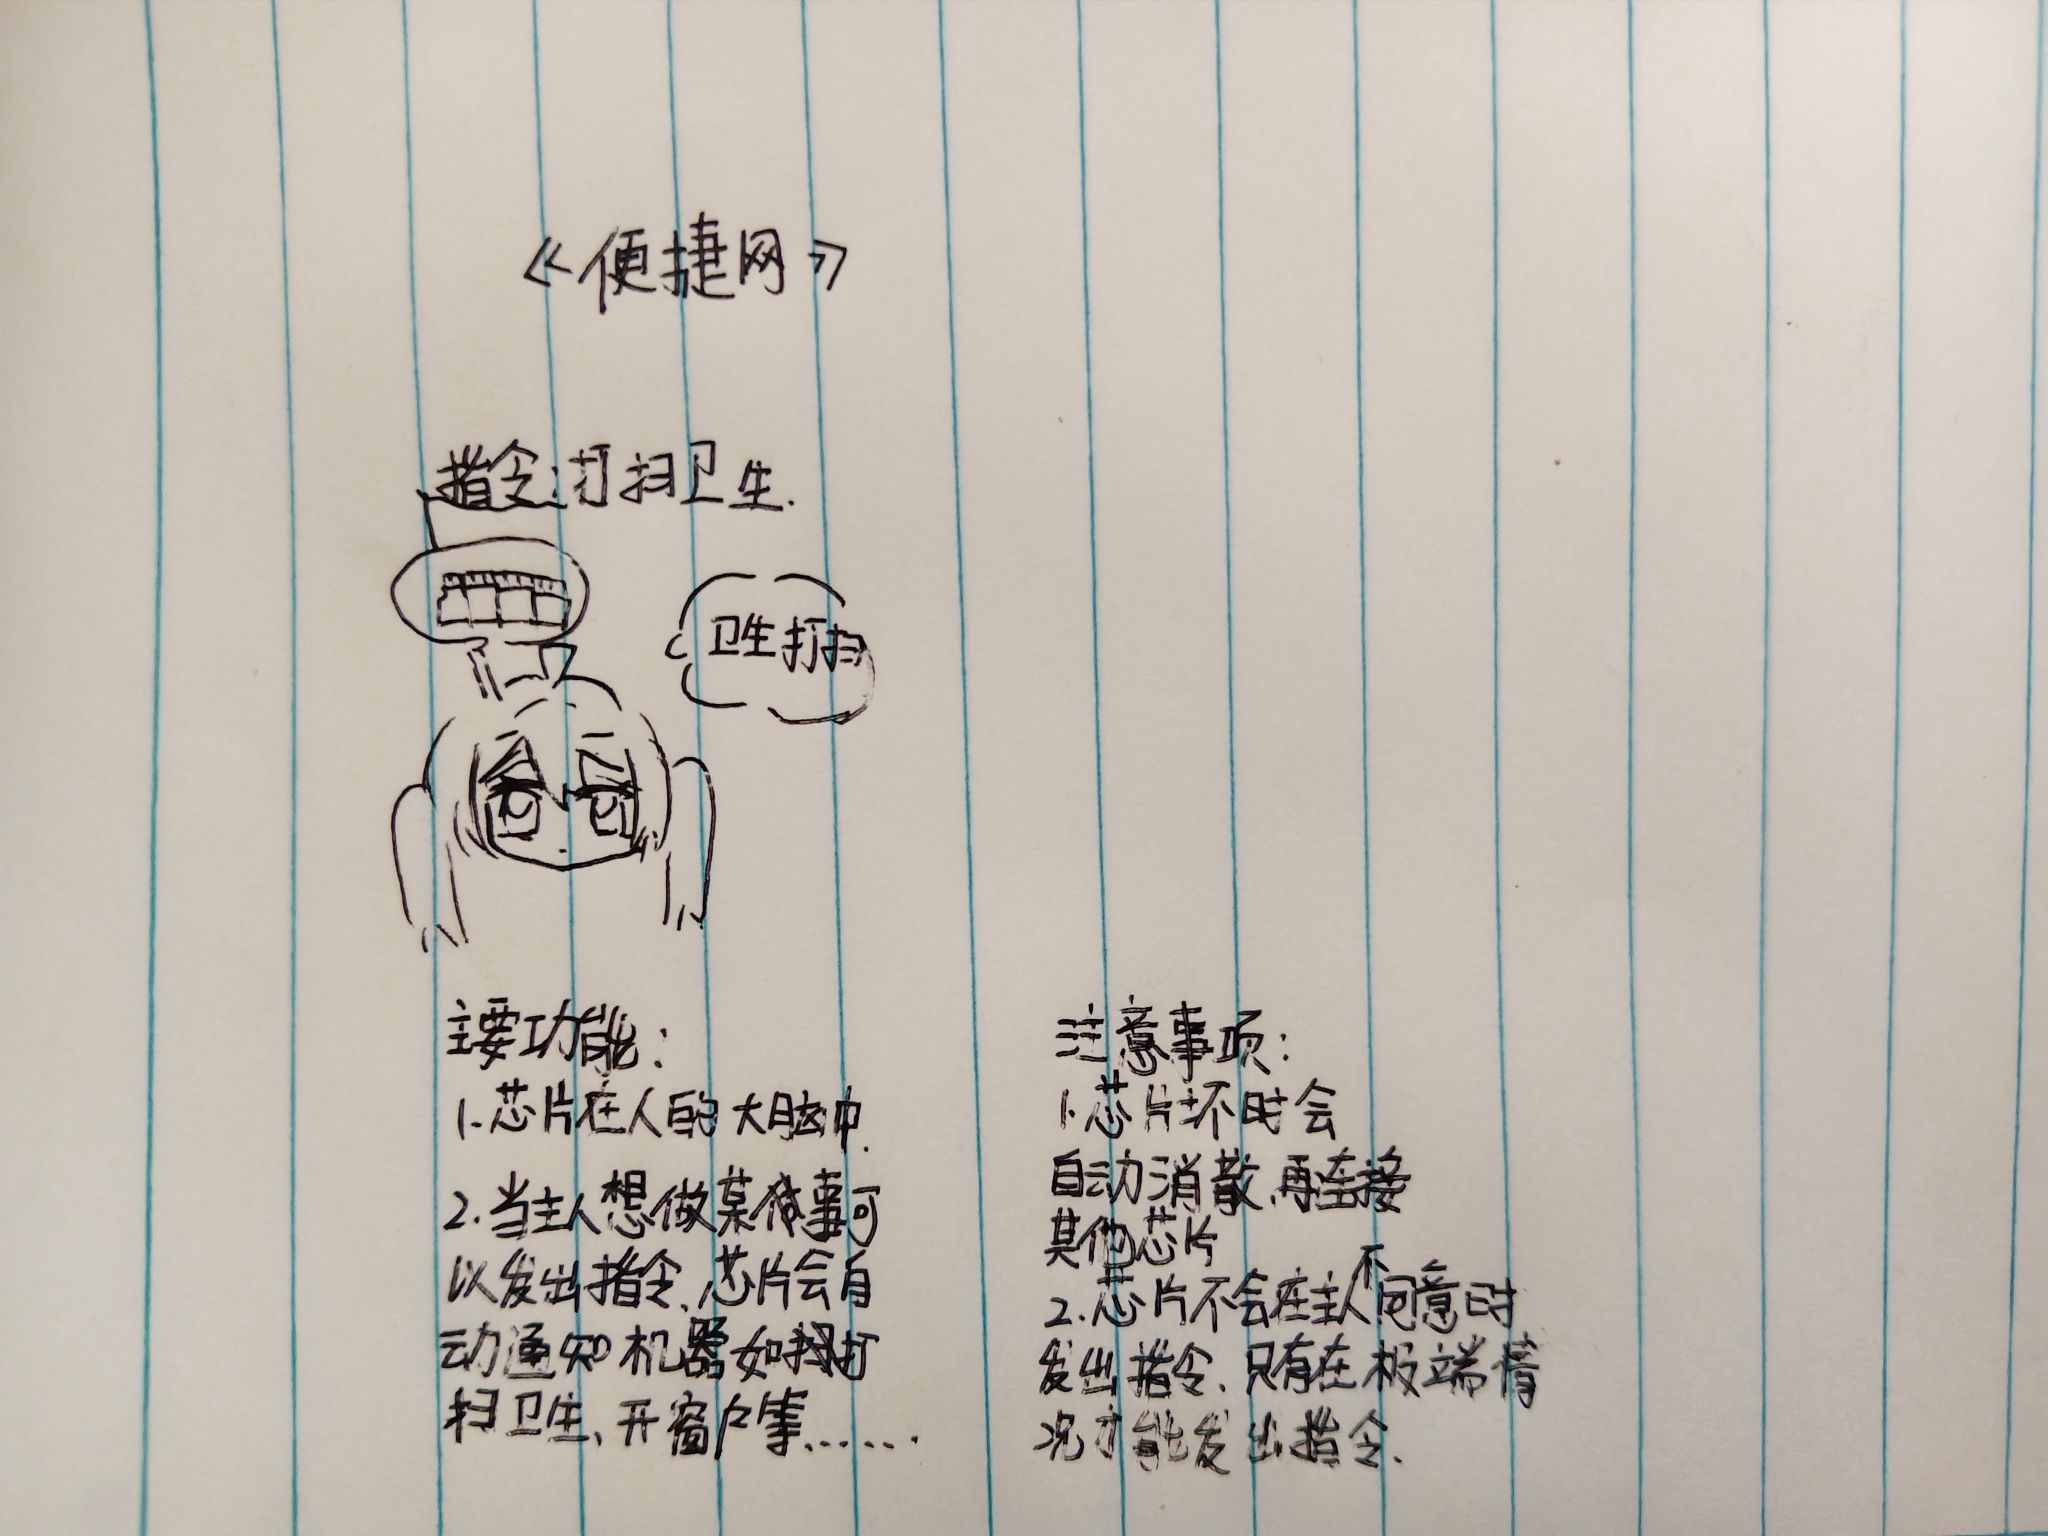 《便捷网》
指令:打扫卫生.
卫生打扫
主要功能:
1.芯片在人的大脑中.
2.当主人想做某件事可
以发出指令、芯片会自
动通知机器如打
扫卫生、开窗户等......
注意事项:
1.芯片坏时会
自动消散,再连接
其他芯片
2.芯片不会在主人不同意时
发出指令、只有在极端情
况才能发出指令.